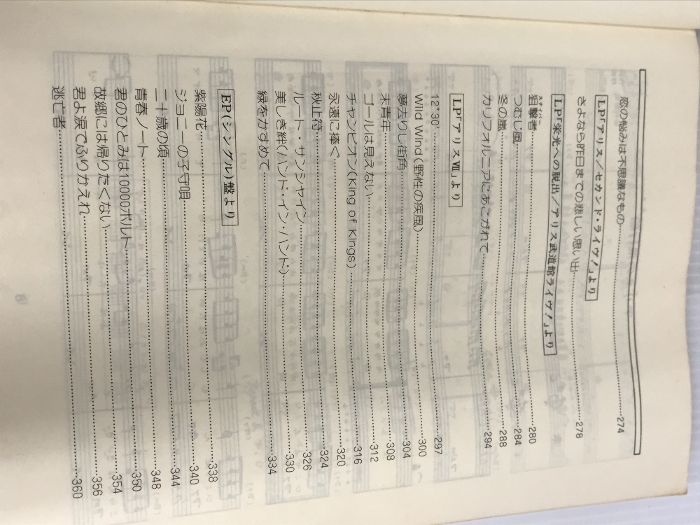 恋の悩みは不思議なもの……274
LP「アリス/セカンド・ライヴ!」より
さよなら昨日までの悲しい思い出……278
LP「栄光への脱出/アリス武道館ライヴ!」より
狙撃者……280
つむじ風……284
冬の嵐……288
カリフォルニアにあこがれて……294
LP「アリスⅦ」より
12°30'……297
Wild Wind(野性の疾風)……300
夢去りし街角……304
未青年……308
ゴールは見えない……312
チャンピオン(King of Kings)……316
永遠に捧ぐ……320
秋止符……324
ルート・サンシャイン……326
美しき絆(ハンド・イン・ハンド)……330
緑をかすめて……334
EP(シングル)盤より
紫陽花……338
ジョニーの子守唄……340
二十歳の頃……344
青春ノート……348
君のひとみは10000ボルト……350
故郷には帰りたくない……354
君よ涙でふりかえれ……356
逃亡者……360